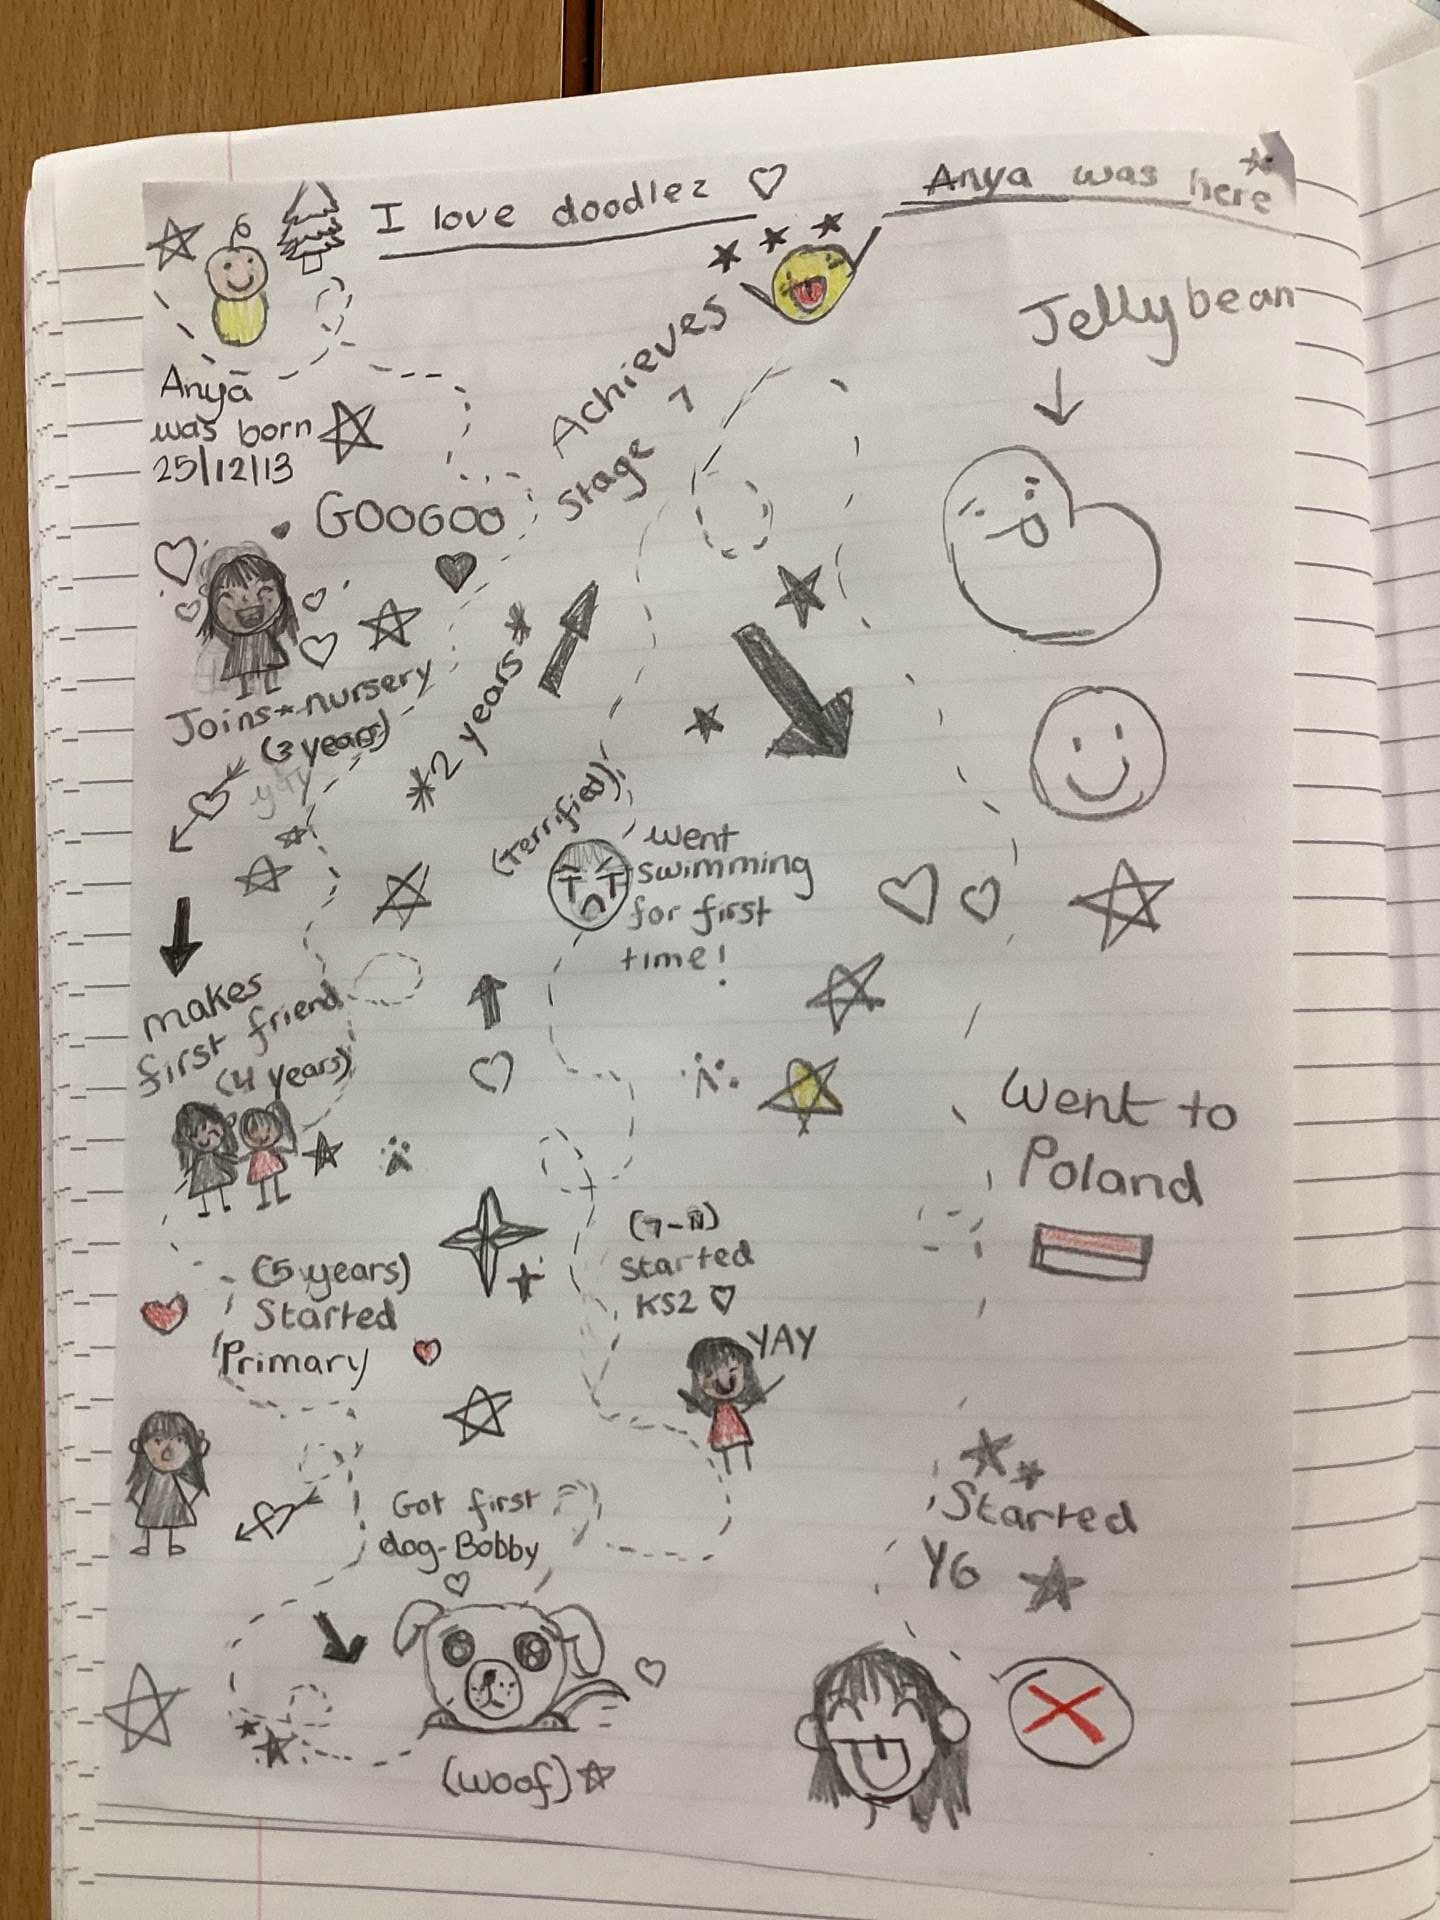 I love doodlez
Anya was here
Anya
was born
25/12/13
GOOGOO
Joins nursery
(3 years)
makes
first friend
(4 years)
(5 years)
Started
Primary
Got first
dog-Bobby
(woof)
YAY
Started
KS2
went
swimming
for first
time!
(Terrified)
*2 years*
Achieves
stage 7
Jellybean
Went to
Poland
Started
Y6